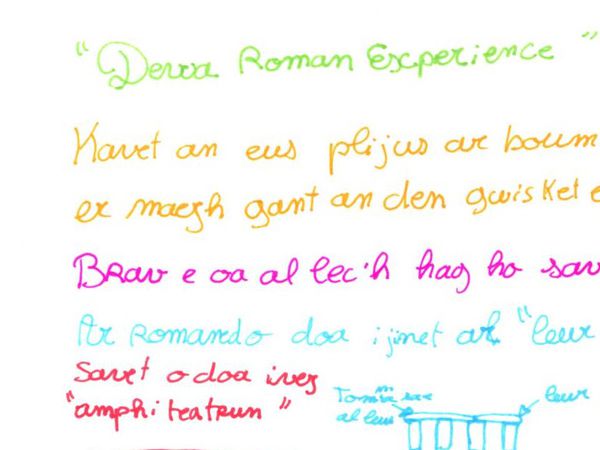 " Derva Roman Experience "
Kavet an eus plijus ar boum
er maezh gant an den gwisket e
Brav e oa al lec'h hag ho sav
Ar Romando doa ijinet ar "leur
Savet o doa ivez
"amphiteatrum"
leur
al leur